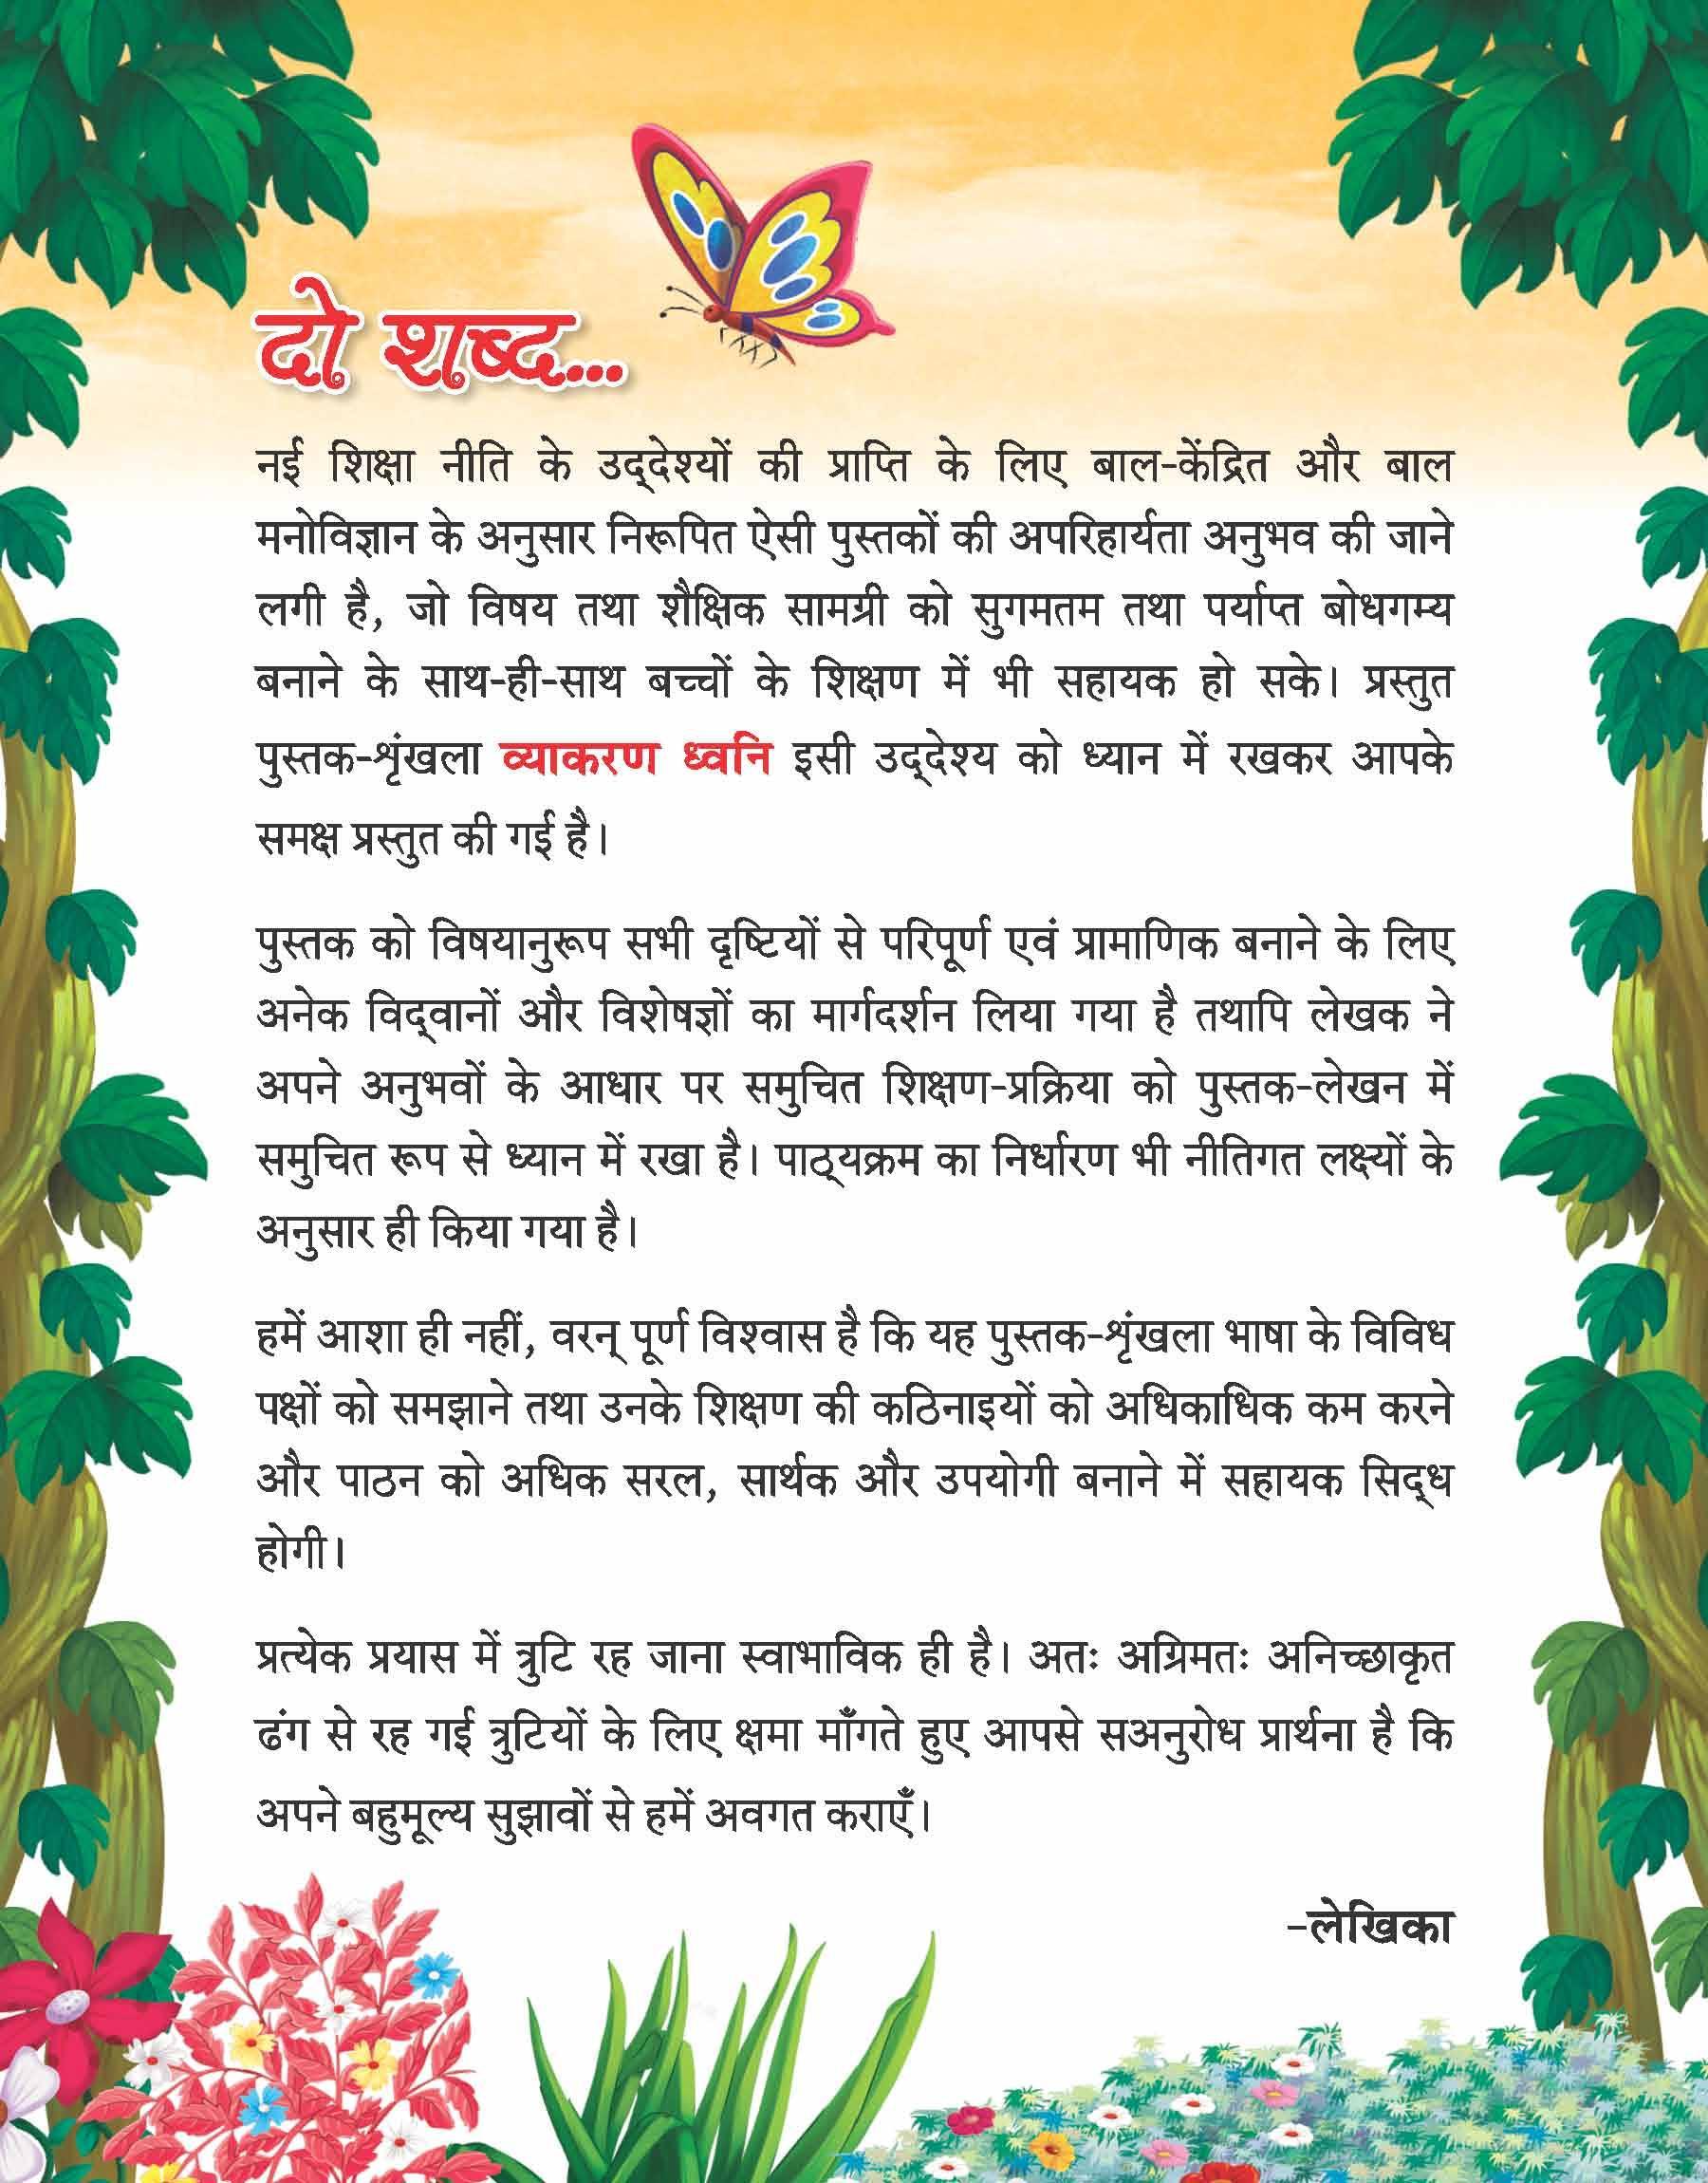 दो शब्द...
नई शिक्षा नीति के उद्‌देश्यों की प्राप्ति के लिए बाल-केंद्रित और बाल
मनोविज्ञान के अनुसार निरूपित ऐसी पुस्तकों की अपरिहार्यता अनुभव की जाने
लगी है, जो विषय तथा शैक्षिक सामग्री को सुगमतम तथा पर्याप्त बोधगम्य
बनाने के साथ-ही-साथ बच्चों के शिक्षण में भी सहायक हो सके। प्रस्तुत
पुस्तक-शृंखला व्याकरण ध्वनि इसी उद्‌देश्य को ध्यान में रखकर आपके
समक्ष प्रस्तुत की गई है।
पुस्तक को विषयानुरूप सभी दृष्टियों से परिपूर्ण एवं प्रामाणिक बनाने के लिए
अनेक विद्‌वानों और विशेषज्ञों का मार्गदर्शन लिया गया है तथापि लेखक ने
अपने अनुभवों के आधार पर समुचित शिक्षण-प्रक्रिया को पुस्तक-लेखन में
समुचित रूप से ध्यान में रखा है। पाठ्‌यक्रम का निर्धारण भी नीतिगत लक्ष्यों के
अनुसार ही किया गया है।
हमें आशा ही नहीं, वरन् पूर्ण विश्वास है कि यह पुस्तक-शृंखला भाषा के विविध
पक्षों को समझाने तथा उनके शिक्षण की कठिनाइयों को अधिकाधिक कम करने
और पाठन को अधिक सरल, सार्थक और उपयोगी बनाने में सहायक सिद्‌ध
होगी।
प्रत्येक प्रयास में त्रुटि रह जाना स्वाभाविक ही है। अतः अग्रिमतः अनिच्छाकृत
ढंग से रह गई त्रुटियों के लिए क्षमा माँगते हुए आपसे सअनुरोध प्रार्थना है कि
अपने बहुमूल्य सुझावों से हमें अवगत कराएँ।
-लेखिका